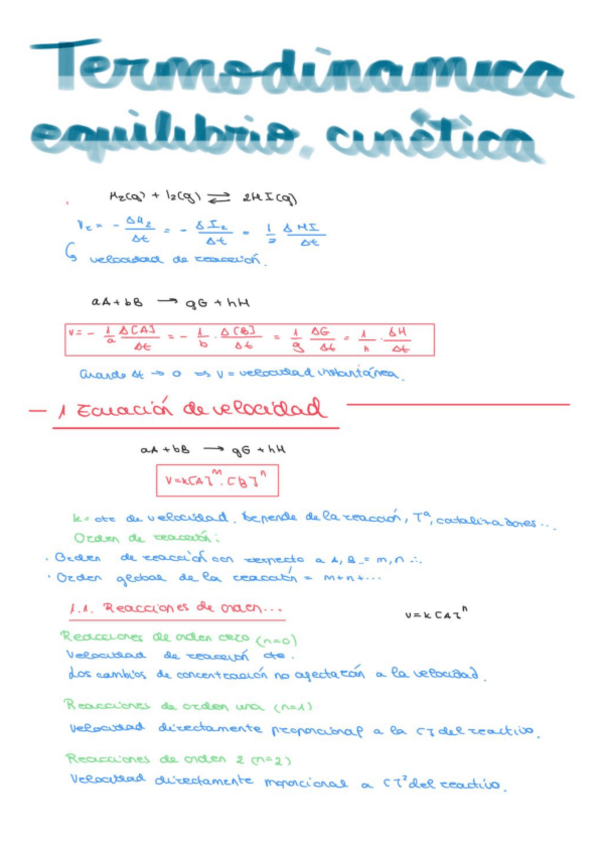 Termodinamica
equilibrio. cinética
H2(g) + I2(g) ⇌ 2HI(g)
Vr = - ΔH2/Δt = - ΔI2/Δt = 1/2 ΔHI/Δt
↳ velocidad de reacción.
aA + bB → gG + hH
V = - 1/a Δ[A]/Δt = - 1/b · Δ[B]/Δt = 1/g ΔG/Δt = 1/h · ΔH/Δt
Cuando Δt → 0 ⇒ V = velocidad instantánea.
- 1 Ecuación de velocidad
aA + bB → gG + hH
V = k[A]^m · [B]^n
k = cte de velocidad. Depende de la reacción, Tª, catalizadores...
Orden de reacción:
· Orden de reacción con respecto a A, B = m, n ...
· Orden global de la reacción = m+n+...
1.1. Reacciones de orden...
v = k[A]^n
Reacciones de orden cero (n=0)
Velocidad de reacción cte.
Los cambios de concentración no afectarán a la velocidad.
Reacciones de orden una (n=1)
Velocidad directamente proporcional a la [] del reactivo.
Reacciones de orden 2 (n=2)
Velocidad directamente proporcional a []² del reactivo.